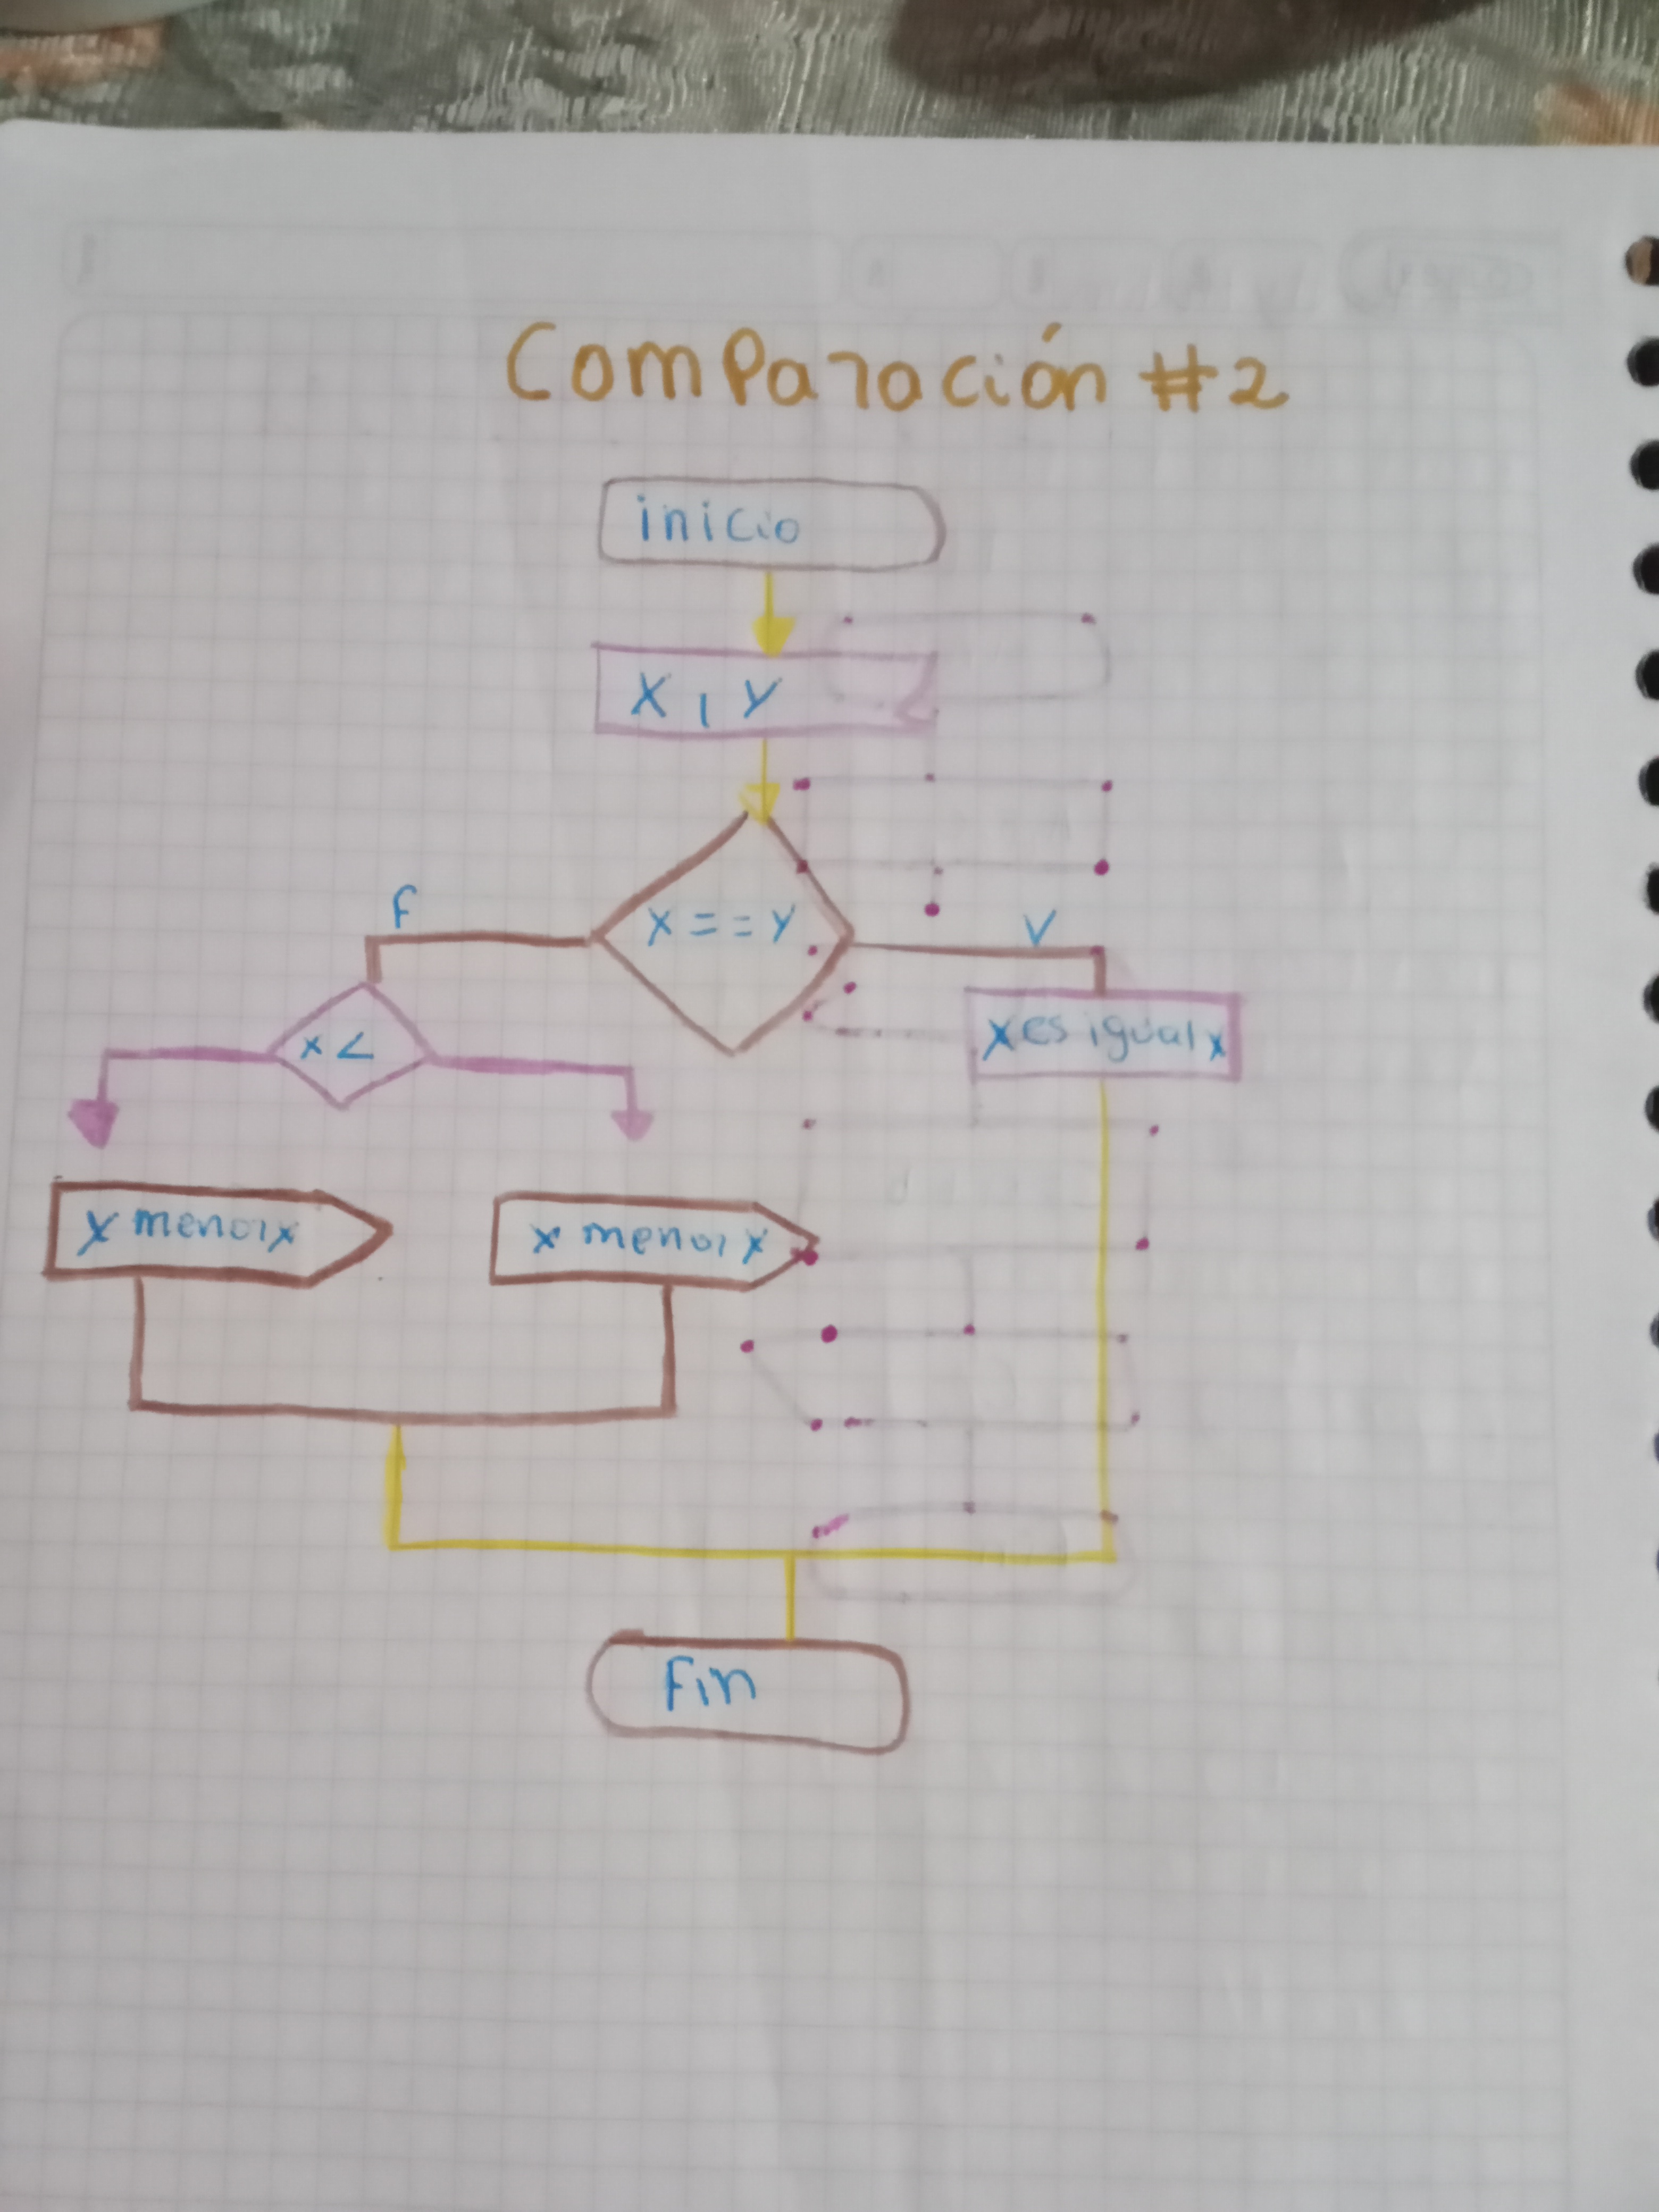 Comparación #2
inicio
X, Y
X == Y
F
V
x <
x es igual x
x menor x
x menor x
Fin